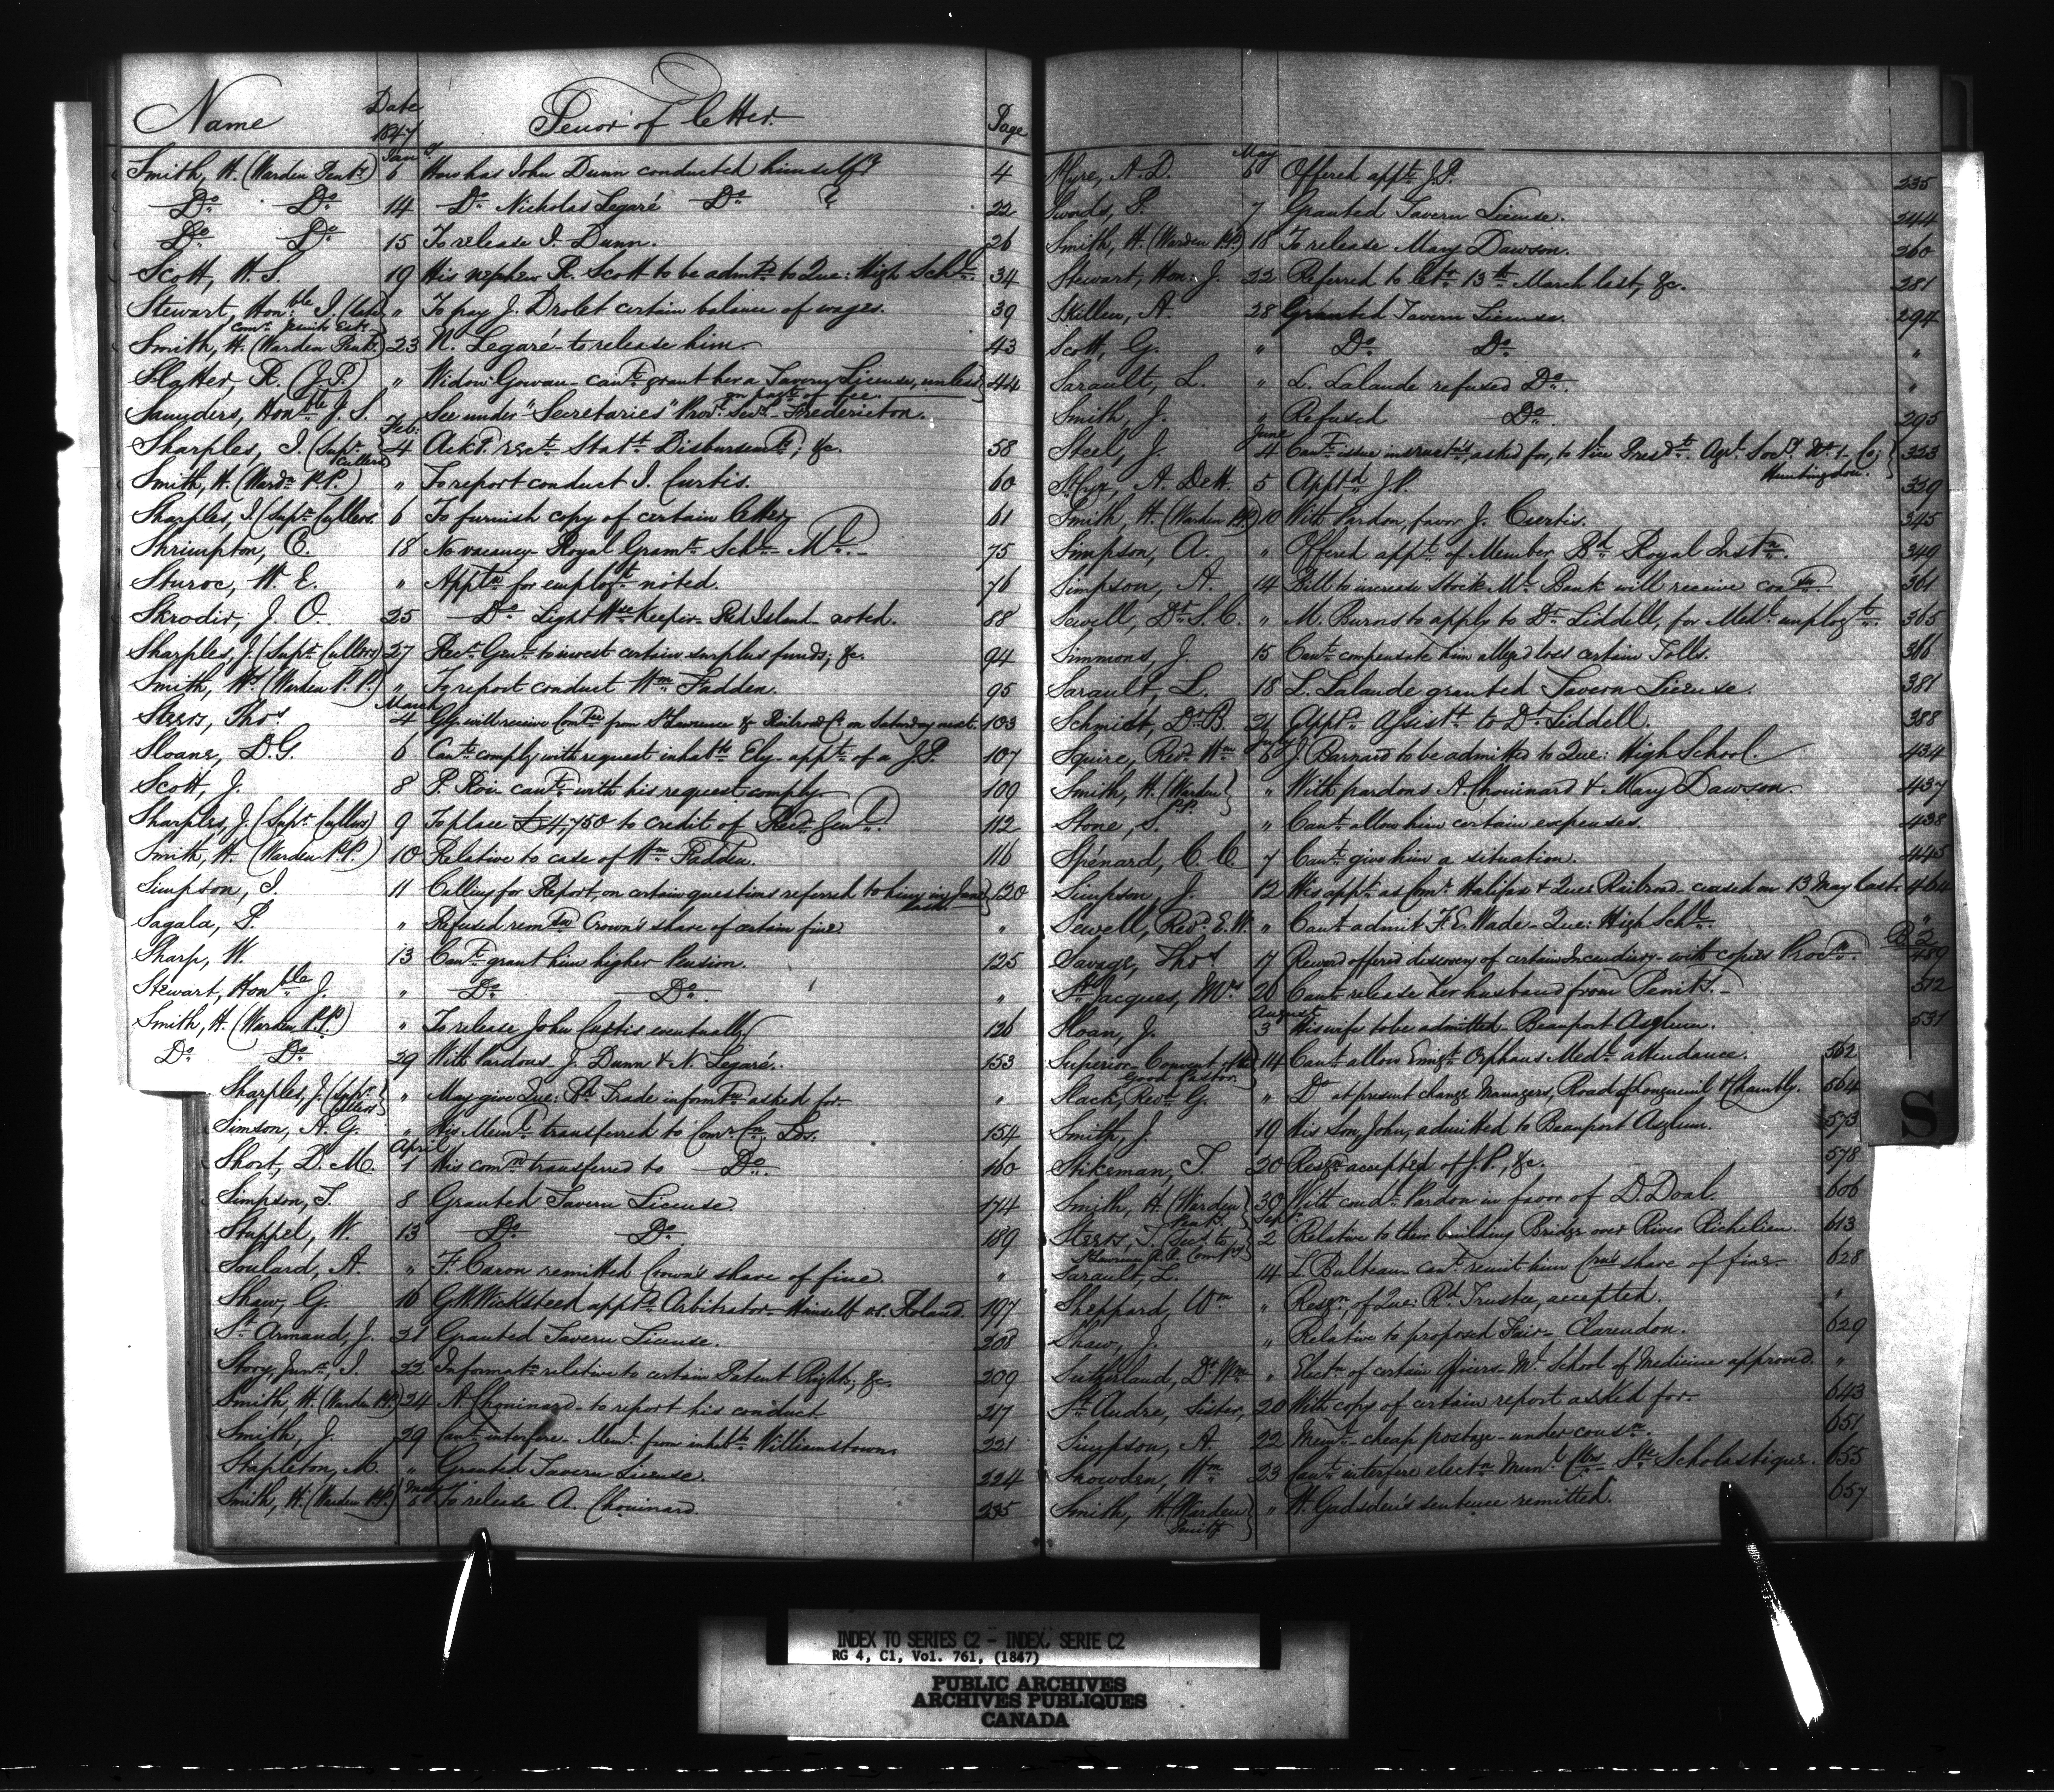 Name Date 1847 Tenor of letter. Page
Smith, H. (Warden Penty.) Jany. 6 How has John Dunn conducted himself? 4
Do. Do. 14 Do. Nicholas Legaré Do. ? 22
Do. Do. 15 To release J. Dunn. 26
Scott, H. S. 19 His nephew R. Scott to be admtd. to Que: High Schl. 34
Stewart, Honble J. (late " To pay J. Drolet certain balance of wages. 39
Comr. Jesuits Ests.
Smith, H. (Warden Penty.) 23 N. Legaré - to release him. 43
Slatter, R. (J.P.) " Widow Gowan - cant. grant her a Tavern License, unless 44
on payt. of fee.
Saunders, Honble J. S. See under "Secretaries" Provl. Secy. - Fredericton.
Sharples, J. (Supt. Cullers) Feb: 4 Ackt. rect. Statt. Disbursemts; &c. 58
Smith, H. (Wardn P.P.) " To report conduct J. Curtis. 60
Sharples, J. (Supt. Cullers. 6 To furnish copy of certain letter 61
Shrimpton, C. 18 No vacancy - Royal Gramr. Schl. - Ml. - 75
Sturoc, W. E. " Appln. for employt noted. 76
Skrodir, J. O. 25 Do. Light Hse Keeper - Red Island - noted. 88
Sharples, J. (Supt. Cullers) 27 Rect. Genl. to invest certain surplus funds; &c. 94
Smith, Hy (Warden P.P.) " To report conduct Wm Fadden. 95
Steers, Thos March 4 Gy. will receive Comtee from St Lawrence & Railroad Co. on Saturday next. 103
Sloane, D. G. 6 Cant. comply with request inhabts Ely - appt. of a J.P. 107
Scott, J. 8 P. Roi cant. with his request comply 109
Sharples, J. (Supt. Cullers) 9 To place £4,750 to credit of Recr. Genl. 112
Smith, H. (Warden P.P.) 10 Relative to case of Wm. Fadden. 116
Simpson, J. 11 Calling for Report, on certain questions referred to him in June 120
last.
Sagala, P. " Refused remson Crown's share of certain fine "
Sharp, W. 13 Cant. grant him higher Pension. 125
Stewart, Honble J. " Do. Do. "
Smith, H. (Warden P.P.) " To release John Curtis eventually. 126
Do. Do. 29 With Pardons - J. Dunn & N. Legaré. 153
Sharples, J. (Supt. Cullers) " May give Que: Bd. Trade informtn asked for. "
Simson, A. G. " His Meml. transferred to Comr. Cn. Lds. 154
Short, D. M. April 1 His comn transferred to Do. 160
Simpson, T. 8 Granted Tavern License 174
Stappel, W. 13 Do. Do. 189
Soulard, A. " F. Caron remitted Crown's share of fine. "
Shaw, G. 16 G W Wicksteed apptd. Arbitrator - Himself as. Roland. 197
St Armand, J. 21 Granted Tavern License. 208
Story, Junr., J. 22 Informatn relative to certain Patent Rights; &c. 209
Smith, H. (Warden P.P.) 24 A. Chouinard - to report his conduct 217
Smith, J. 29 Cant. interfere - Meml. from inhabts Williamstown. 221
Stapleton, M. " Granted Tavern License. 224
Smith, H. (Warden P.P.) May 6 To release A. Chouinard. 235
St Cyre, A. D. May 6 Offered appt. J.P. 235
Swords, P. 7 Granted Tavern License. 244
Smith, H. (Warden P.P.) 18 To release Mary Dawson. 260
Stewart, Hon. J. 22 Referred to letr. 13th March last, &c. 281
Skillen, A. 28 Granted Tavern License. 294
Scott, G. " Do. Do. "
Sarault, L. " L. Lalande refused Do. "
Smith, J. " Refused Do. 295
Steel, J. June 4 Cant. issue instructns, asked for, to Vice Presdt. Agrl. Socy. No. 1 - Co; 323
Huntingdon.
St Cyr, A. DeH. 5 Apptd J.P. 339
Smith, H. (Warden P.P.) 10 With Pardon, favor J. Curtis. 345
Simpson, A. " Offered appt. of Member Bd. Royal Instn. 349
Simpson, A. 14 Bill to increase Stock Ml. Bank will receive consn. 361
Sewell, Dr. S. C. " M. Burns to apply to Dr. Liddell, for Medl. employt. 365
Simmons, J. 15 Cant. compensate him alleged loss certain Tolls. 366
Sarault, L. 18 L. Lalande granted Tavern License. 381
Schmidt, Dr. B. 21 Apptd. Assistt. to Dr. Liddell. 388
Squire, Revd. Wm July 6 J. Barnard to be admitted to Que: High School. 434
Smith, H. (Warden P.P.) " With pardons A. Chouinard & Mary Dawson 437
Stone, S. " Cant. allow him certain expenses. 438
Spénard, C. C. 7 Cant. give him a situation. 445
Simpson, J. 12 His appt. as Comr. Halifax & Quec Railroad - ceased on 13 May last. 464
Sewell, Revd. E. W. " Cant. admit F. E. Wade - Que: High Schl. "
B. 2
Savage, Thos 17 Reward offered discovery of certain Incendiary - with copies Procln. 489
St. Jacques, Mrs 26 Cant. release her husband from Penity. - 512
Sloan, J. August 3 His wife to be admitted - Beauport Asylum. 531
Superior - Convent of the 14 Cant. allow Emigt. Orphans Medl. attendance. 562
Good Pastor
Slack, Revd. G. " Do at present change Managers, Road of Longueuil & Chambly. 564
Smith, J. 19 His Son, John, admitted to Beauport Asylum. 573
Stikeman, T. 20 Resgn. accepted of J.P., &c. 578
Smith, H. (Warden Penty.) 30 With condl. Pardon in favor of D. Doal. 606
Steers, T. (Secy. to Sepr. 2 Relative to their building Bridge over River Richelieu. 613
St Lawrence R.R. Compy)
Sarault, L. 14 L. Bulteau cant. remit him Crn's share of fine. 628
Sheppard, Wm " Resgn. of Que: Rd. Trustee, accepted. "
Shaw, J. " Relative to proposed Fair - Clarendon. 629
Sutherland, Dr. Wm " Electn of certain Officers - Ml. School of Medicine approved. "
St. Andre, Sister, 20 With copy of certain report asked for. 643
Simpson, A. 22 Meml. - cheap postage - under consn. 651
Snowden, Wm 23 Cant. interfere electn Munl. Clrs - Ste Scholastique. 655
Smith, H. (Warden " H. Gadsden's sentence remitted. 657
Penity
S
INDEX TO SERIES C2 - INDEX, SERIE C2
RG 4, C1, Vol. 761, (1847)
PUBLIC ARCHIVES
ARCHIVES PUBLIQUES
CANADA